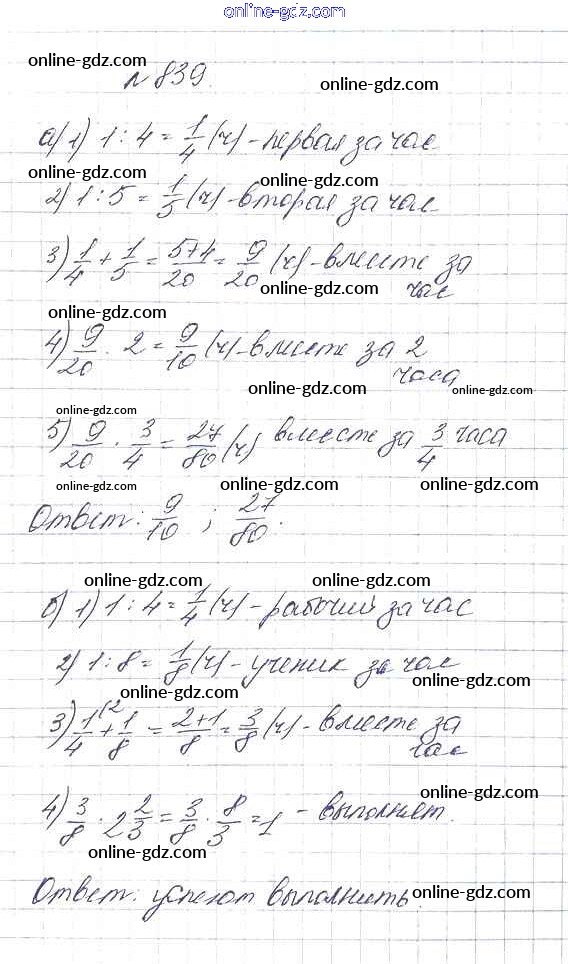 online-gdz.com
online-gdz.com
№ 839.
online-gdz.com
а) 1) 1 : 4 = 1/4 (ч) - первая за час
online-gdz.com
online-gdz.com
2) 1 : 5 = 1/5 (ч) - вторая за час
3) 1/4 + 1/5 = 5+4/20 = 9/20 (ч) - вместе за
час
online-gdz.com
online-gdz.com
4) 9/20 · 2 = 9/10 (ч) - вместе за 2
часа
online-gdz.com
online-gdz.com
online-gdz.com
5) 9/20 · 3/4 = 27/80 (ч) вместе за 3/4 часа
online-gdz.com
online-gdz.com
online-gdz.com
Ответ: 9/10 ; 27/80.
online-gdz.com
online-gdz.com
б) 1) 1 : 4 = 1/4 (ч) - рабочий за час
2) 1 : 8 = 1/8 (ч) - ученик за час
online-gdz.com
online-gdz.com
3) 1/4 (2 + 1/8 = 2+1/8 = 3/8 (ч) - вместе за
час
4) 3/8 · 2 2/3 = 3/8 · 8/3 = 1 - выполнят.
online-gdz.com
online-gdz.com
Ответ: успеют выполнить.
online-gdz.com
online-gdz.com